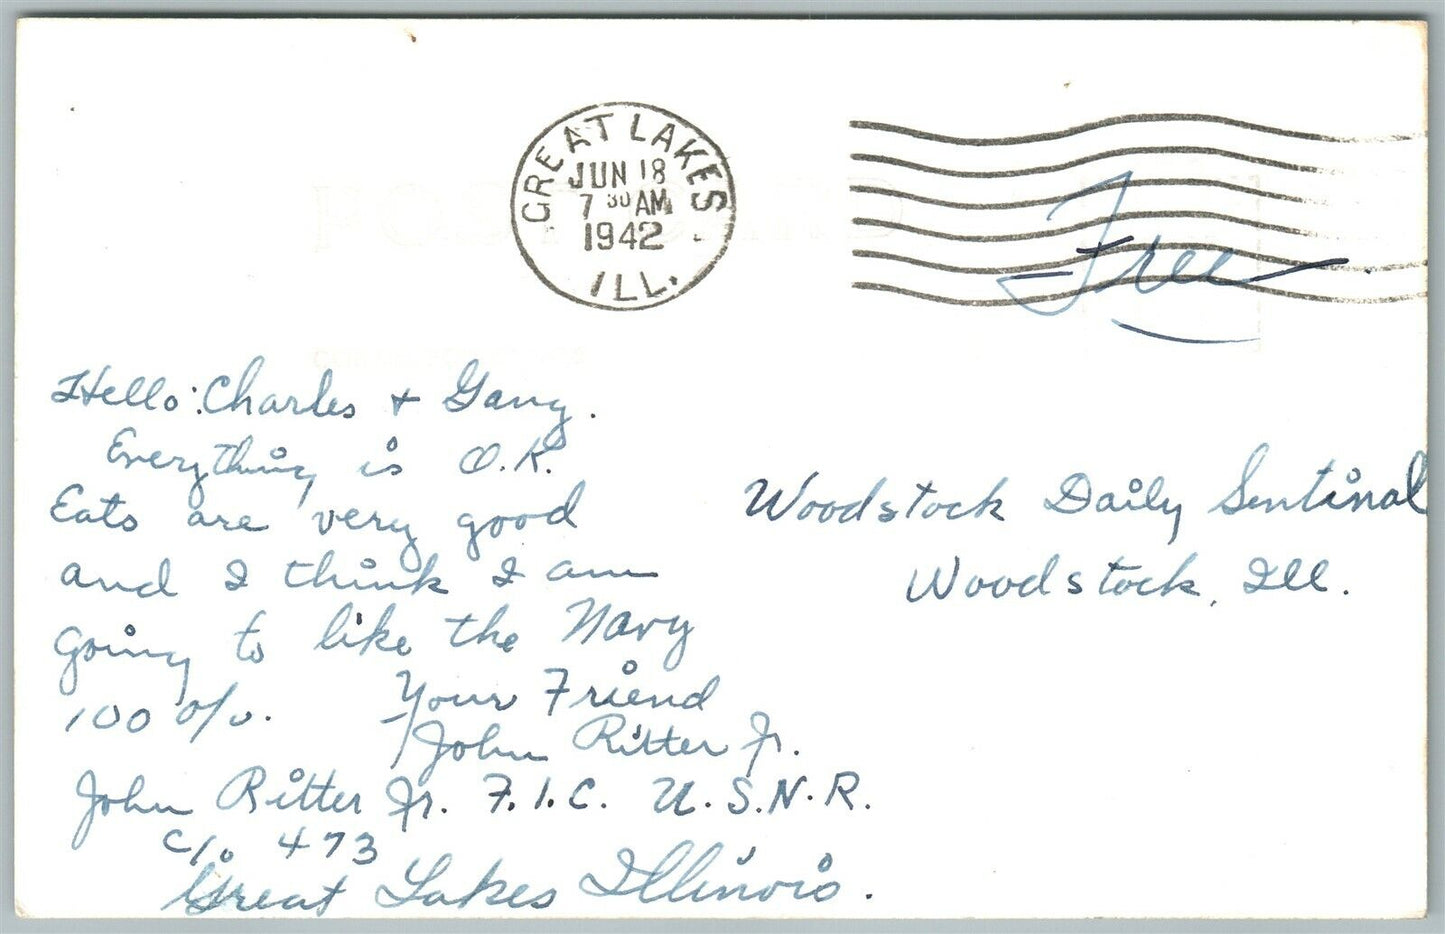 GREAT LAKES
JUN 18
7 30 AM
1942
ILL.
Free
Hello: Charles + Gang.
Everything is O.K.
Eats are very good
and I think I am
going to like the Navy
100 o/o.
Your Friend
John Ritter Jr.
John Ritter Jr. F.1.C. U.S.N.R.
C/o 473
Great Lakes Illinois.
Woodstock Daily Sentinal
Woodstock, Ill.